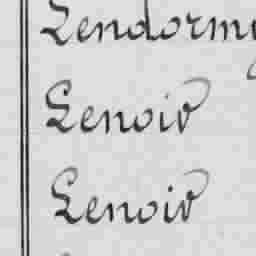 Lendormy
Lenoir
Lenoir